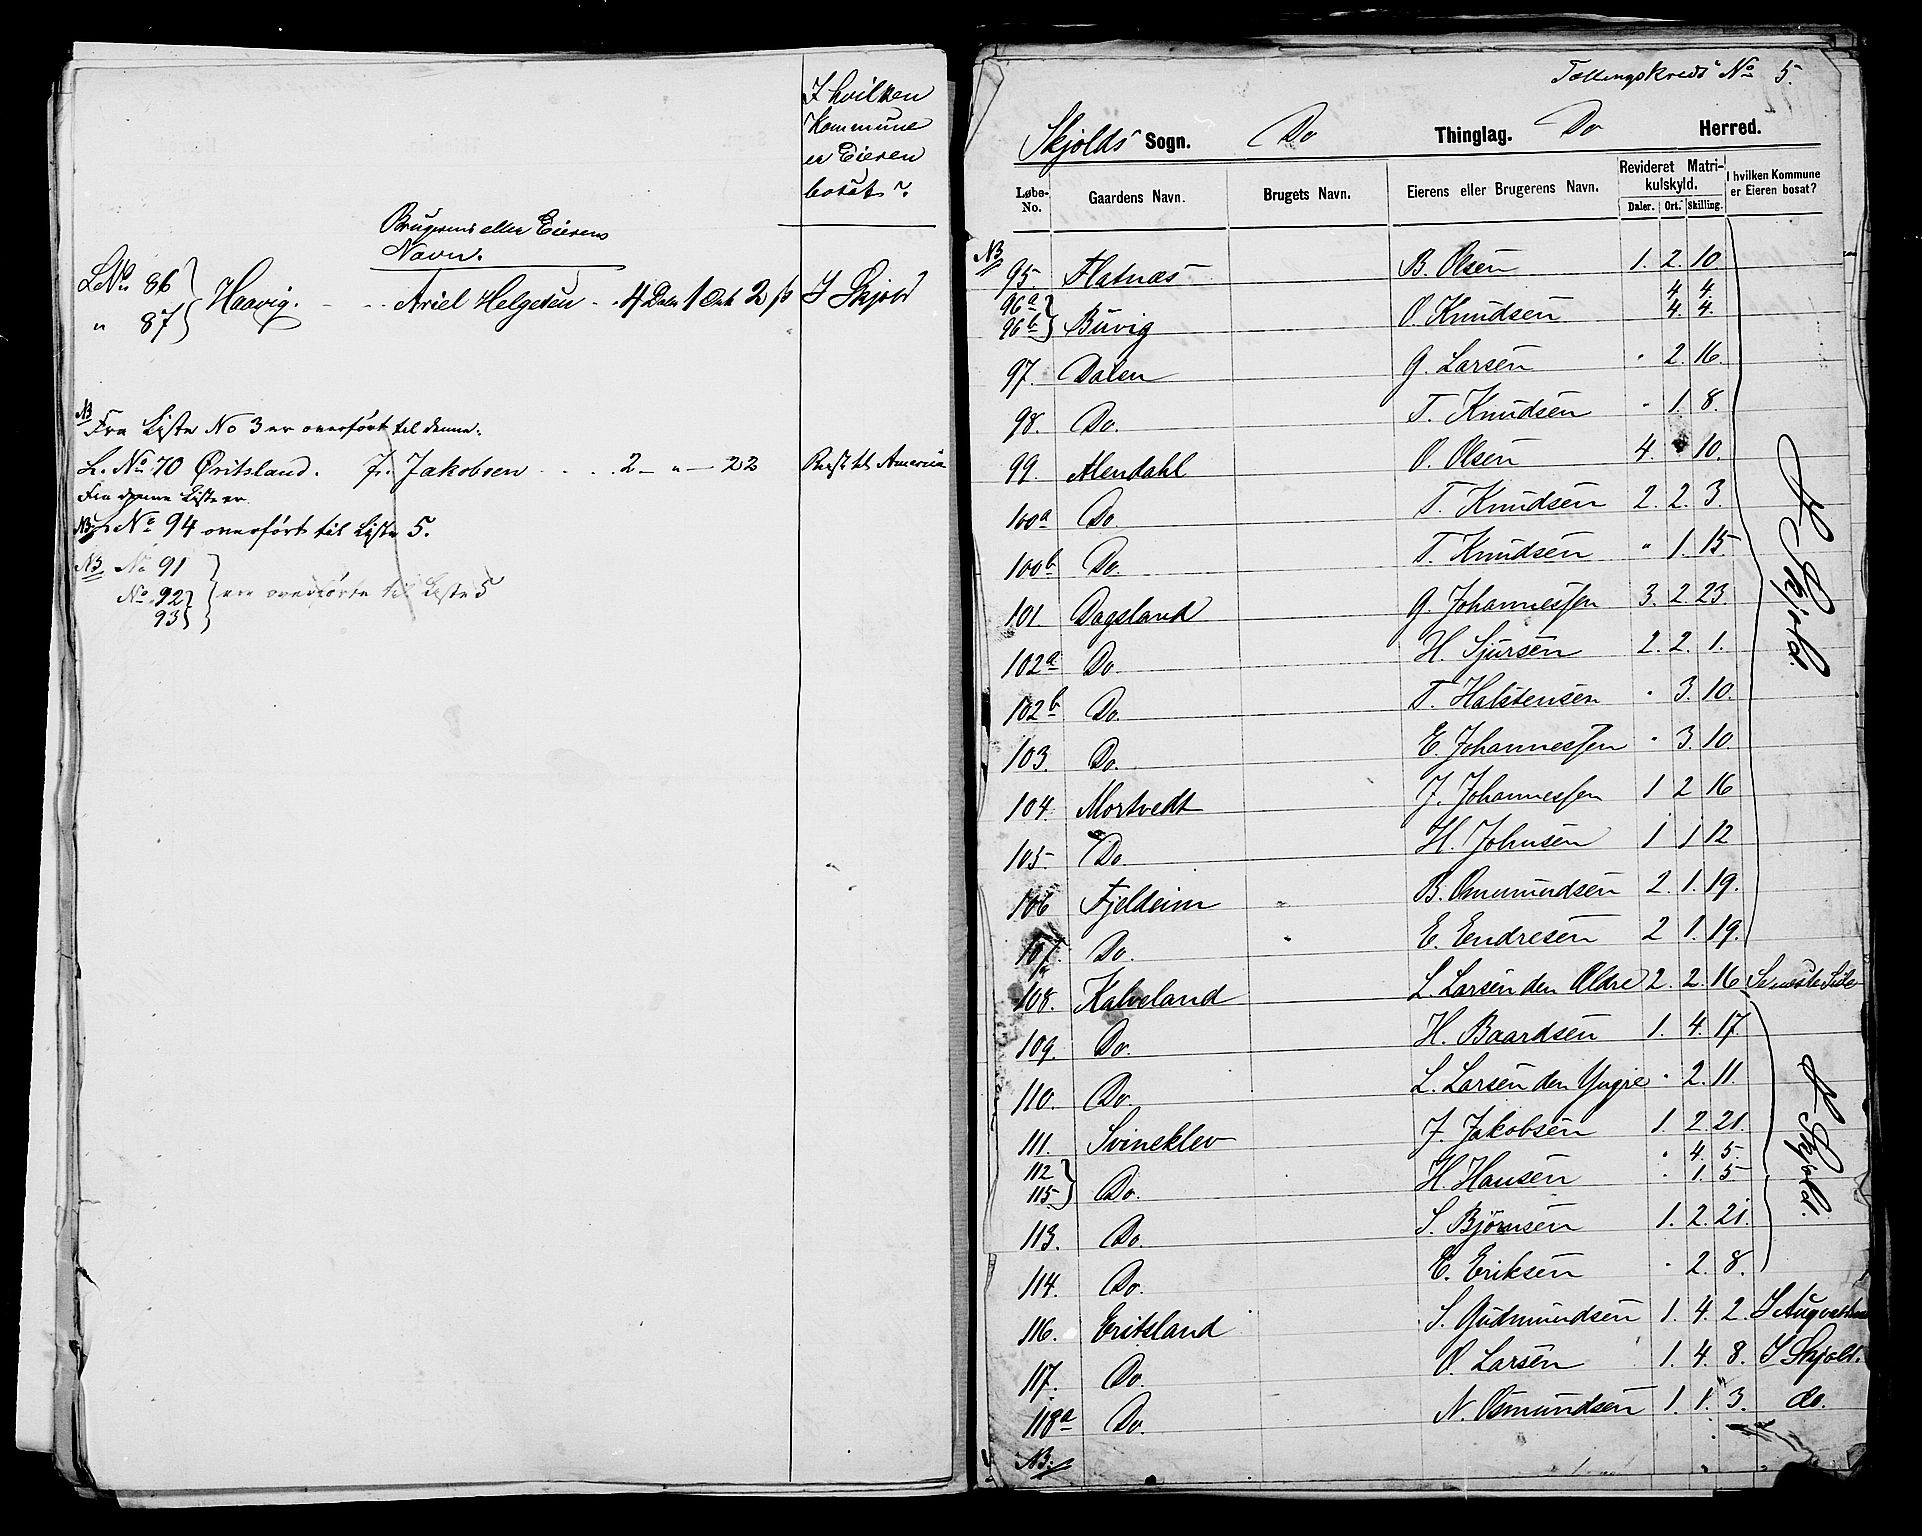 I hvilken
Kommune
er Eieren
bosat?
Brugerens eller Eierens
Navn.
L No 86
" 87 } Haavig. - - Ariel Helgesen - 4 Daler 1 Ort 2 ß I Skjold
NB
Fra Liste No 3 er overført til denne:
L. No 70 Øritsland. J. Jakobsen . . . . 2 - " - 22 Reist til Amerika
Fra denne Liste er
NB No 94 overført til Liste 5.
NB No 91
No 92
93 } ere overførte til Liste 5
Tællingskreds No 5.
Skjolds Sogn. Do Thinglag. Do Herred.
Løbe-No. Gaardens Navn. Brugets Navn. Eierens eller Brugerens Navn. Revideret Matrikulskyld. I hvilken Kommune er Eieren bosat?
Daler. Ort. Skilling.
NB
95. Flatnæs B. Olsen 1. 2. 10
96a 4 4
96b } Buvig O. Knudsen 4. 4.
97. Dalen G. Larsen " 2. 16.
98. Do. T. Knudsen " 1. 8.
99. Alendahl O. Olsen 4. " 10.
100a Do T. Knudsen 2. 2. 3.
100b Do. T. Knudsen " 1. 15
101 Dagsland G. Johannessen 3. 2. 23.
102a Do. H. Sjursen 2. 2. 1.
102b Do. T. Halstensen " 3. 10.
103. Do. E. Johannessen " 3. 10
104. Mortvedt J. Johannessen 1 2 16
105 Do. H. Johnsen 1 1 12
106 Fjeldeim " B. Omundsen 2. 1. 19.
107. Do. " E. Endresen 2 1. 19.
I Skjold.
108. Kalveland L. Larsen den Ældre 2. 2. 16 Se næste Side
109. Do. H. Baardsen 1. 4. 17
110. Do. L. Larsen den Yngre " 2. 11.
111. Svineklev J. Jakobsen 1. 2. 21.
112 " 4. 5.
115 } Do. H. Hansen " 1. 5
113. Do. S. Bjørnsen 1. 2. 21.
114. Do. E. Eriksen " 2. 8.
I Skjold.
116. Eritsland S. Gudmundsen 1. 4. 2.
117. Do. O. Larsen 1. 4. 8. I Skjold.
118a Do. N. Osmundsen 1. 1. 3. do.
NB.